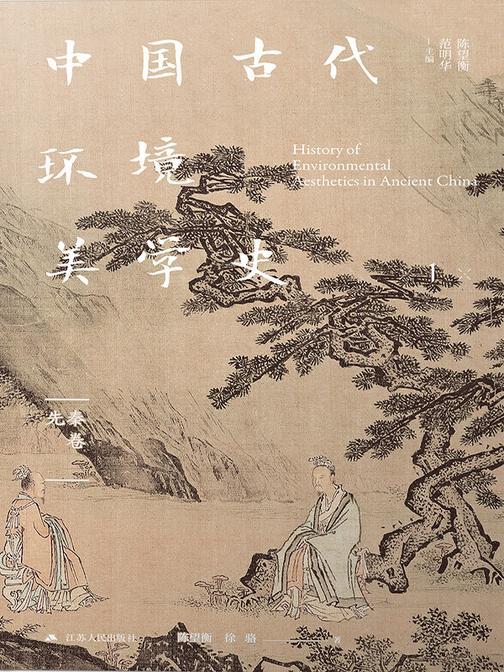 中国古代
环境
美学史
陈望衡
范明华
主编
History of
Environmental
Aesthetics in Ancient China
1
先秦卷
江苏人民出版社
陈望衡 徐骆 著